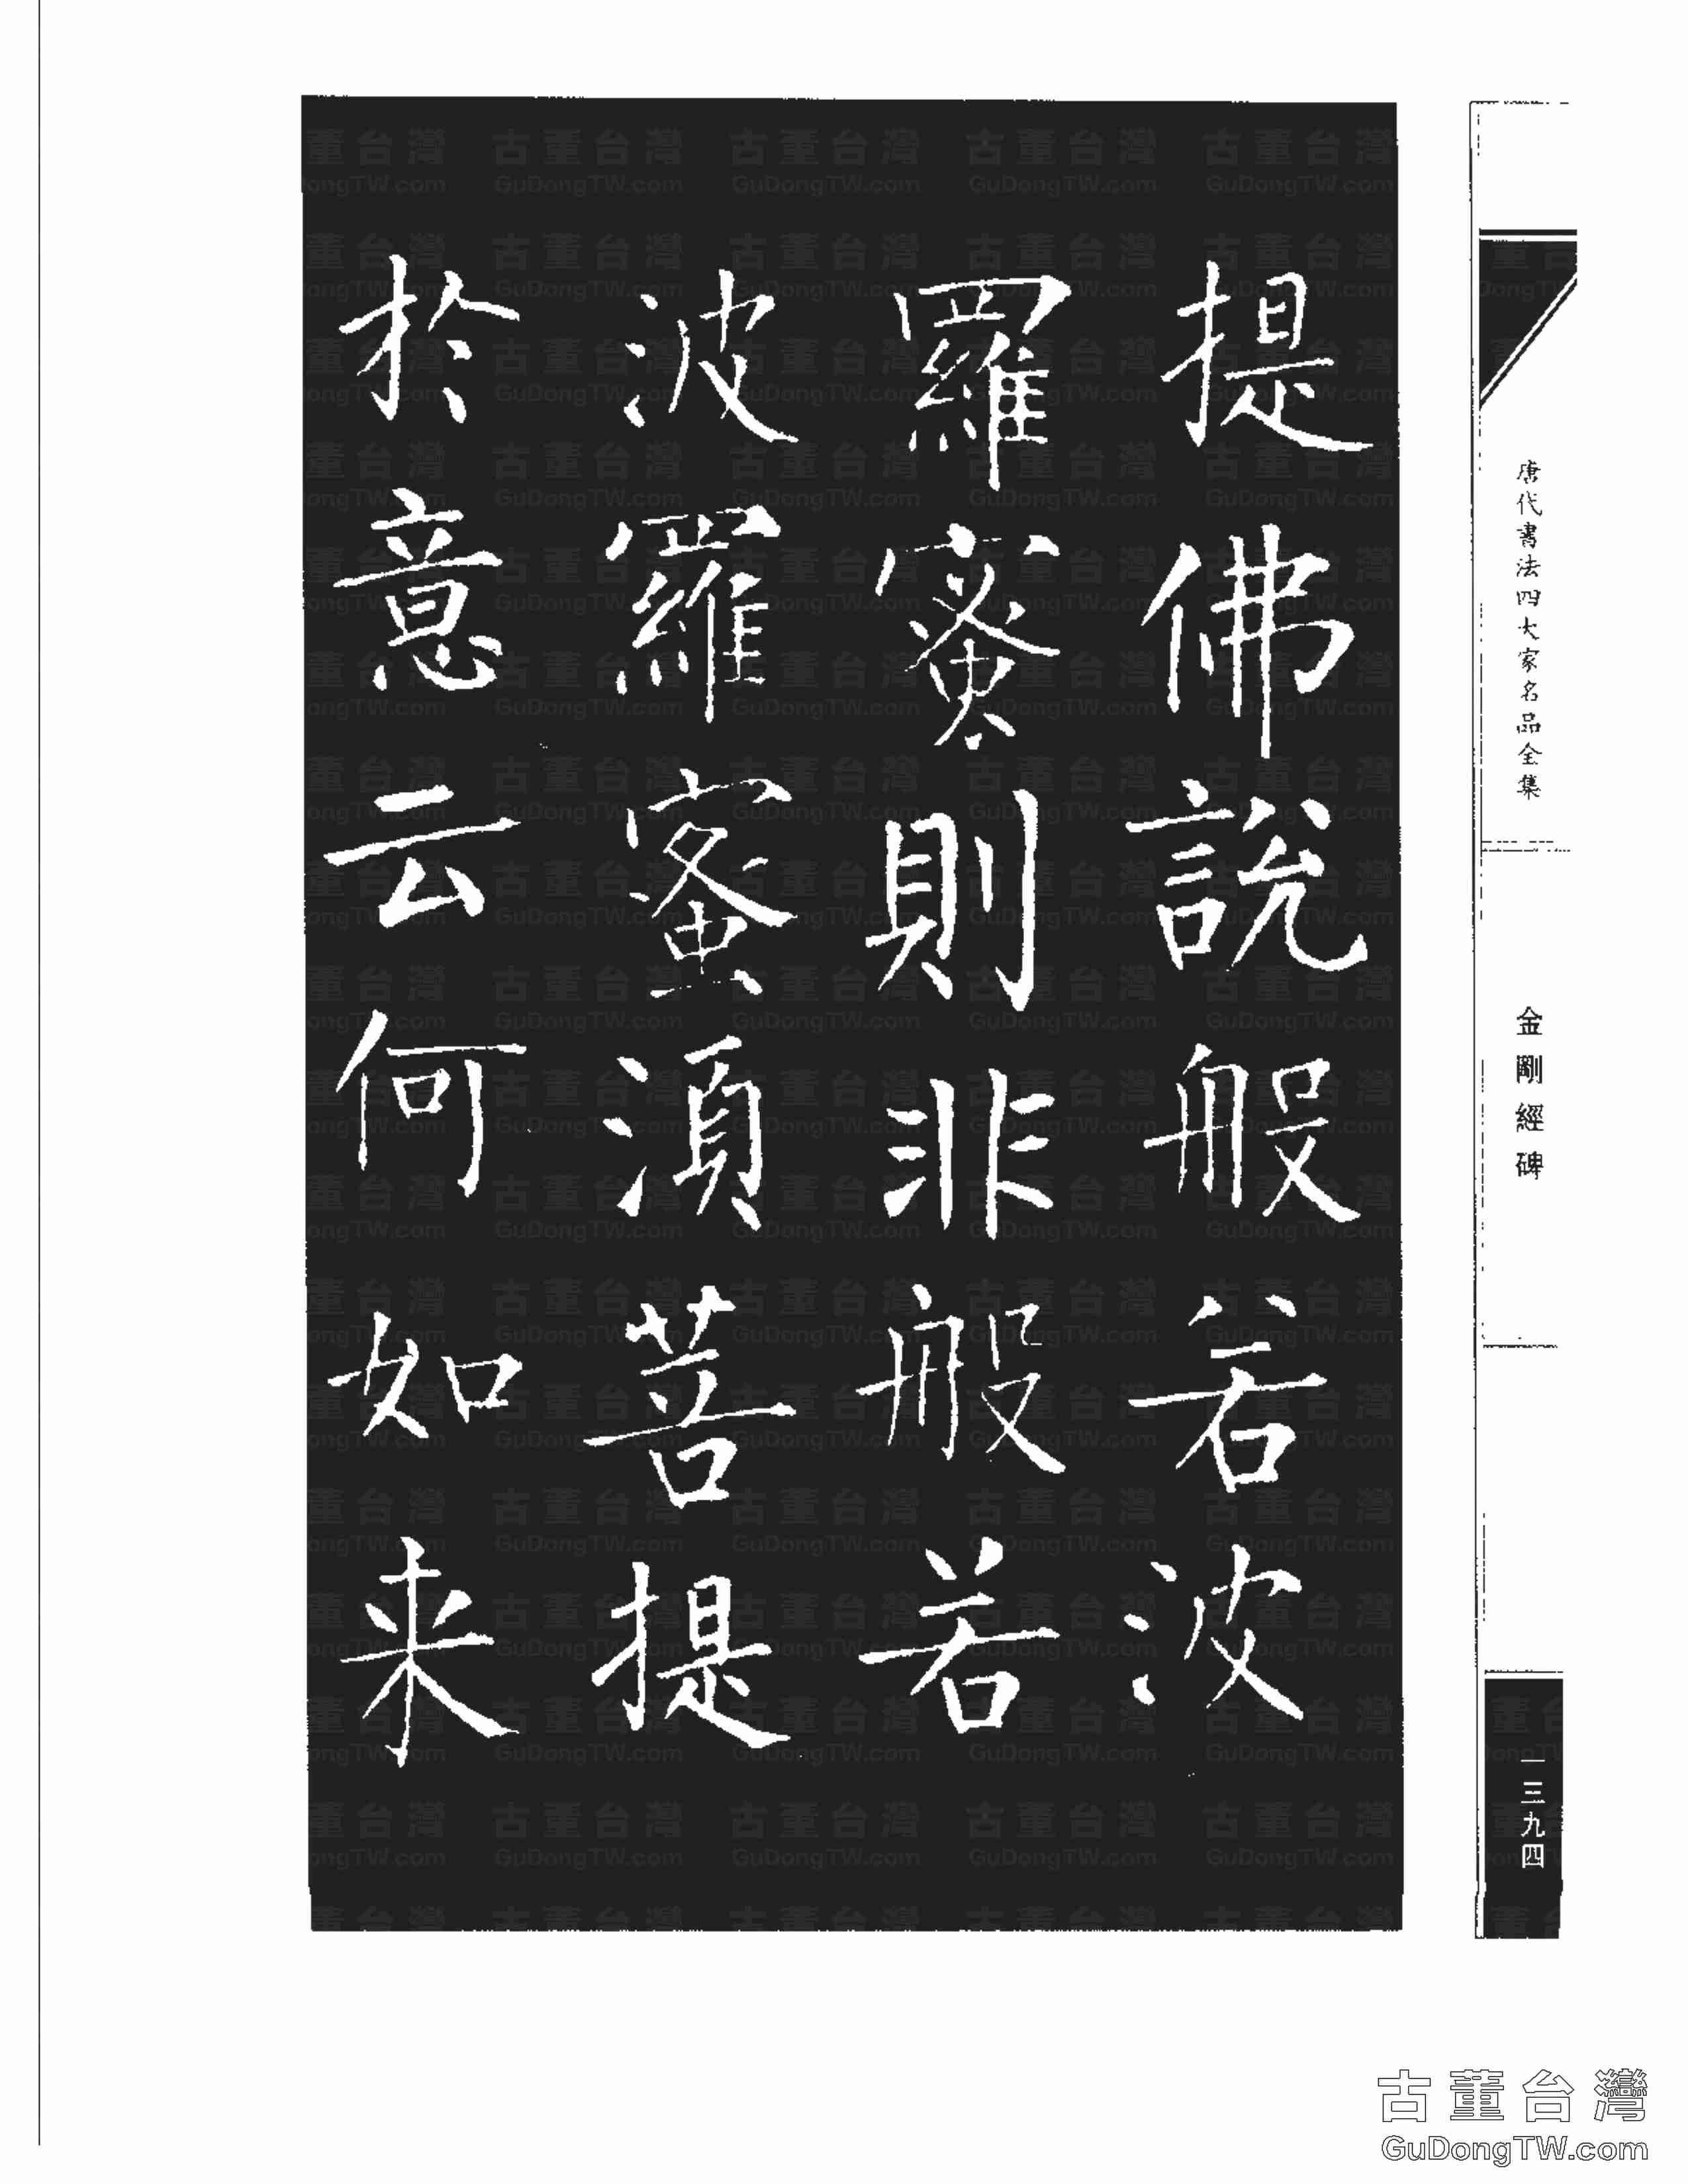 唐代書法四大家名品全集
金剛經碑
一三九四
提佛說般若波
羅蜜則非般若
波羅蜜湏菩提
於意云何如来
古董台灣
GuDongTW.com